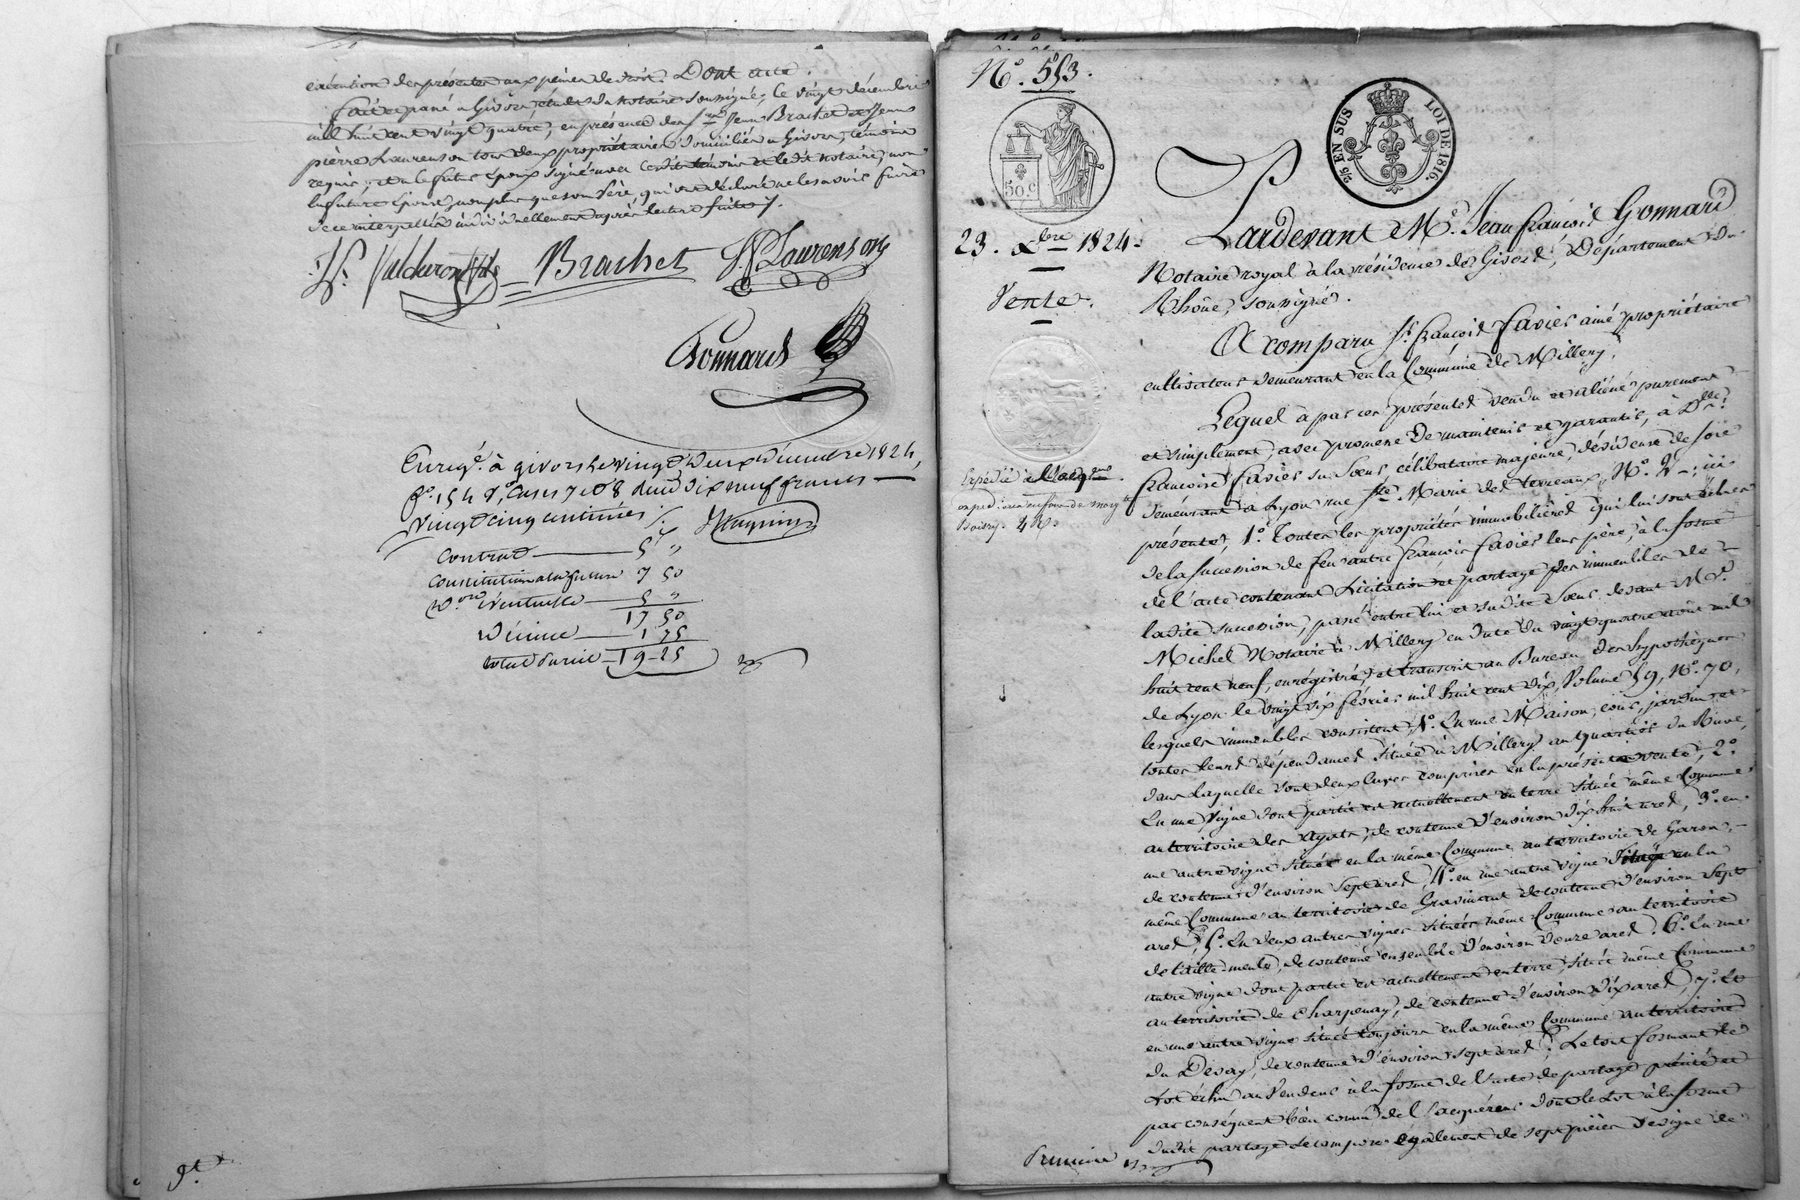 exécution des présentes aux peines de droit. Dont acte.
Fait et passé à Givors, étude du notaire soussigné, le vingt décembre
mil huit cent vingt quatre, en présence des Srs Jean Brachet et Jean
pierre Laurenson tous deux propriétaires domiciliés à Givors, témoins
requis, et le futur époux signé avec lesdits témoins et ledit notaire, non
la future épouse, non plus que son père, qui ont déclaré ne le savoir faire
de ce interpellés individuellement après lecture faite.
Valduron fils
Brachet
Laurenson
Gonnard
Enregé. à givors le vingt deux Décembre 1824,
fo. 154 Vo. Cases 7 et 8 Reçu dix neuf francs
vingt cinq centimes
Contrat 5 "
Constitution à la future 7 50
Don éventuelle 5 "
17 50
Décime 1 75
total du reçu 19-25
No. 553.
50 c
25 EN SUS LOI DE 1816.
23. Xbre 1824.
Vente.
Pardevant Me. Jean françois Gonnard
Notaire royal à la résidence de Givors, Département du
Rhône, soussigné.
A comparu Sr. françois favier ainé propriétaire
cultivateur demeurant en la Commune de Millery,
Lequel a par ces présentes vendu et aliéné purement
et simplement, avec promesse de maintenir et garantir, à Dlle.
françoise favier sa sœur célibataire majeure, dévideuse de soie
demeurant à Lyon rue Ste. Marie des terreaux, No. 2, ici
présente, 1o. Toutes les propriétés immobilières qui lui sont échues
de la succession de feu autre françois favier leur père, à la forme
de l'acte contenant Licitation et partage des immeubles de
ladite succession, passé entre lui et sadite sœur, devant Me.
Michel Notaire à Millery en date du vingt quatre août mil
huit cent neuf, enregistré, et transcrit au Bureau des hypothèques
de Lyon le vingt six février mil huit cent dix, Volume 59, No. 70,
lesquels immeubles consistent, 1o. En une Maison, cour, jardin et
toutes leurs dépendances située à Millery au quartier du
dans laquelle sont deux cuves comprises en la présente vente, 2o.
En une vigne dont partie est actuellement en terre située même Commune
au territoire des, de contenue d'environ dix huit ares, 3o. en
une autre vigne située en la même Commune au territoire de Garon,
de contenue d'environ sept ares, 4o. en une autre vigne située en la
même Commune au territoire de Gravinant de contenue d'environ sept
ares, 5o. En deux autres vignes situées même Commune au territoire
de, de contenue ensemble d'environ douze ares. 6o. En une
autre vigne dont partie est actuellement en terre, située même Commune
au territoire de Charpenay, de contenue d'environ dix ares, 7o. Et
en une autre vigne située toujours en la même Commune au territoire
du Devay, de contenue d'environ sept ares; Le tout formant le
Lot échu au Vendeur à la forme de l'acte de partage précité et
par conséquent bien connu de l'acquéreur dont le Lot à la forme
dudit partage se compose également de sept pièces désigné de